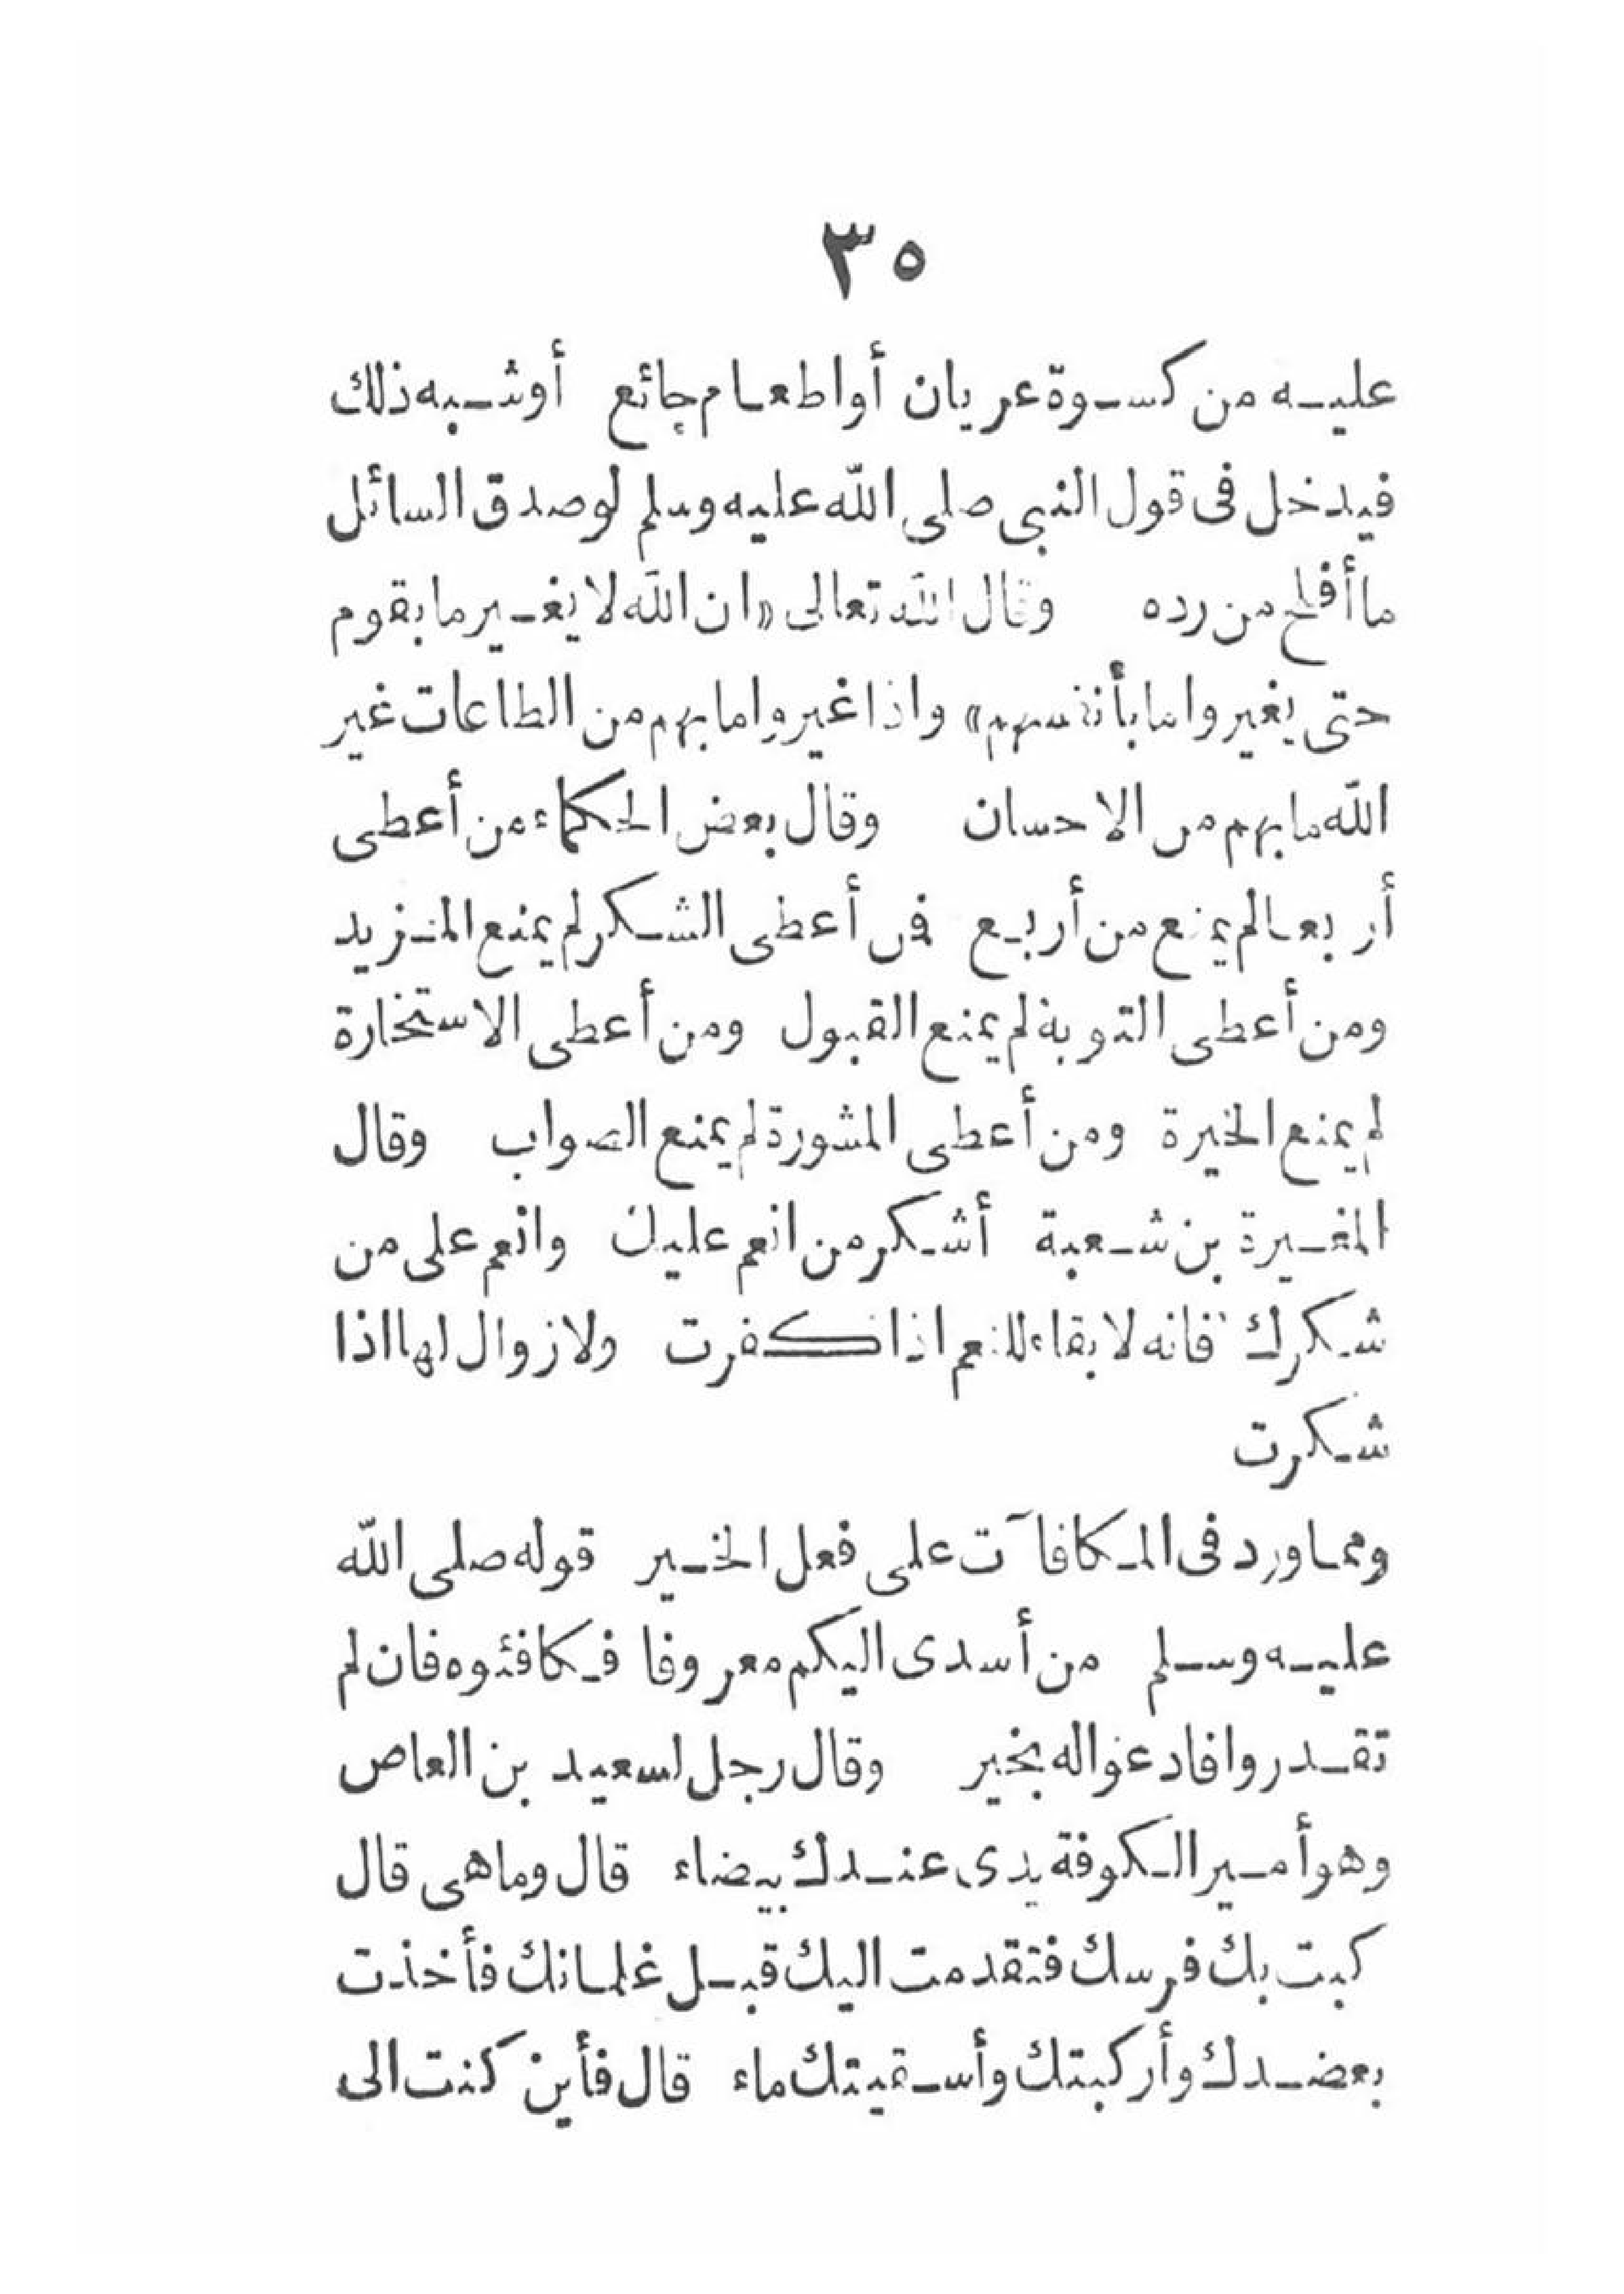 ٣٥
عليه من كسوة عريان أو اطعام جائع أو شبه ذلك
فيدخل فى قول النبى صلى الله عليه وسلم لو صدق السائل
ما أفلح من رده وقال الله تعالى «ان الله لا يغير ما بقوم
حتى يغيروا ما بأنفسهم» واذا غيروا ما بهم من الطاعات غير
الله ما بهم من الاحسان وقال بعض الحكماء من أعطى
أربعا لم يمنع من أربع فمن أعطى الشكر لم يمنع المزيد
ومن أعطى التوبة لم يمنع القبول ومن أعطى الاستخارة
لم يمنع الخيرة ومن أعطى المشورة لم يمنع الصواب وقال
المغيرة بن شعبة أشكر من انعم عليك وانعم على من
شكرك فانه لا بقاء للنعم اذا كفرت ولا زوال لها اذا
شكرت
ومما ورد فى المكافآت على فعل الخير قوله صلى الله
عليه وسلم من أسدى اليكم معروفا فكافئوه فان لم
تقدروا فادعوا له بخير وقال رجل لسعيد بن العاص
وهو أمير الكوفة يدى عندك بيضاء قال وما هى قال
كبت بك فرسك فتقدمت اليك قبل غلمانك فأخذت
بعضدك وأركبتك وأسقيتك ماء قال فأين كنت الى